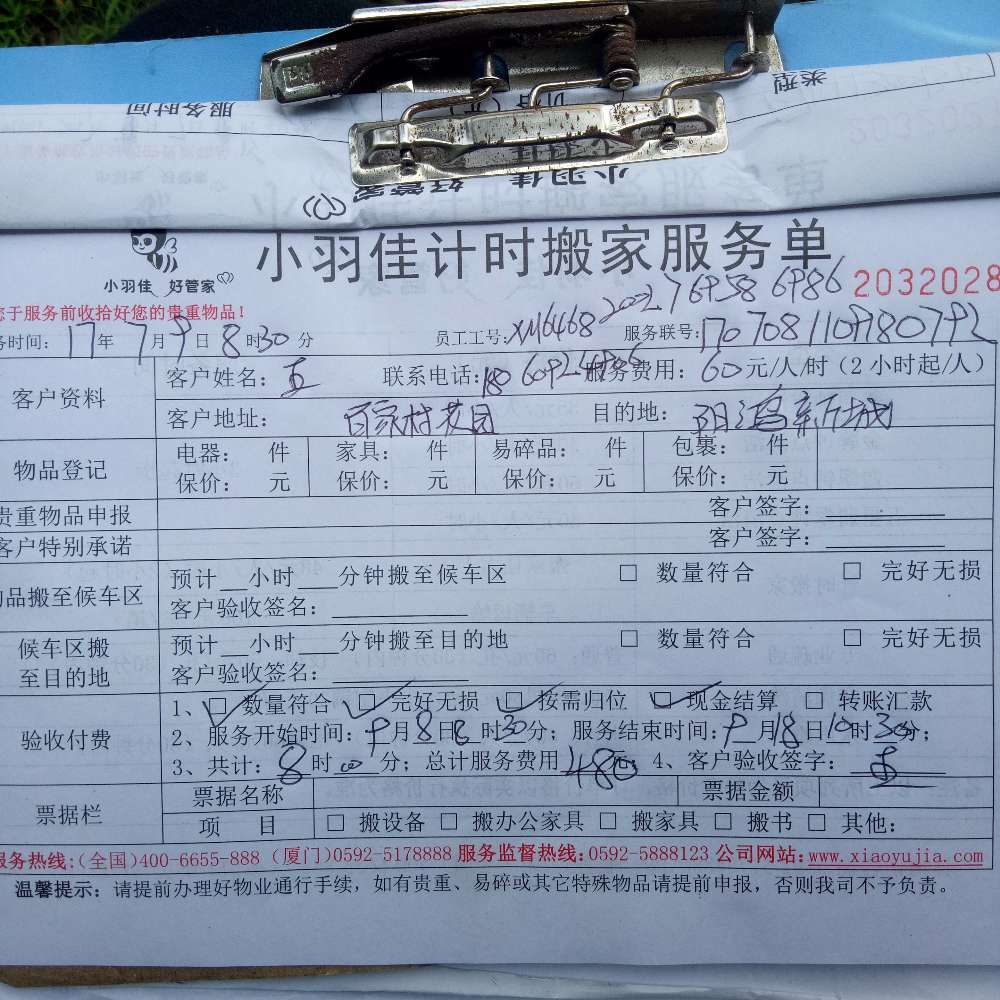 服务时间
类型
小羽佳 好管家
小羽佳计时搬家服务单
小羽佳 好管家
2032028
您于服务前收拾好您的贵重物品!
务时间: 17年7月9日8时30分 员工工号: XM6468 服务联号: 170708110980792
客户资料
客户姓名: 王 联系电话: 服务费用: 60元/人/时(2小时起/人)
客户地址: 百家村花园 目的地: 阳鸿新城
物品登记
电器: 件 家具: 件 易碎品: 件 包裹: 件
保价: 元 保价: 元 保价: 元 保价: 元
贵重物品申报 客户签字:
客户特别承诺 客户签字:
物品搬至候车区
预计__小时___分钟搬至候车区 □ 数量符合 □ 完好无损
客户验收签名:
候车区搬至目的地
预计__小时___分钟搬至目的地 □ 数量符合 □ 完好无损
客户验收签名:
验收付费
1、☑ 数量符合 ☑ 完好无损 ☑ 按需归位 ☑ 现金结算 □ 转账汇款
2、服务开始时间: 9月8日8时30分; 服务结束时间: 9月18日10时30分;
3、共计: 8时00分; 总计服务费用480元; 4、客户验收签字: 王
票据栏
票据名称 票据金额
项 目 □ 搬设备 □ 搬办公家具 □ 搬家具 □ 搬书 □ 其他:
服务热线:(全国)400-6655-888 (厦门)0592-5178888 服务监督热线:0592-5888123 公司网站:www.xiaoyujia.com
温馨提示: 请提前办理好物业通行手续, 如有贵重、易碎或其它特殊物品请提前申报, 否则我司不予负责。